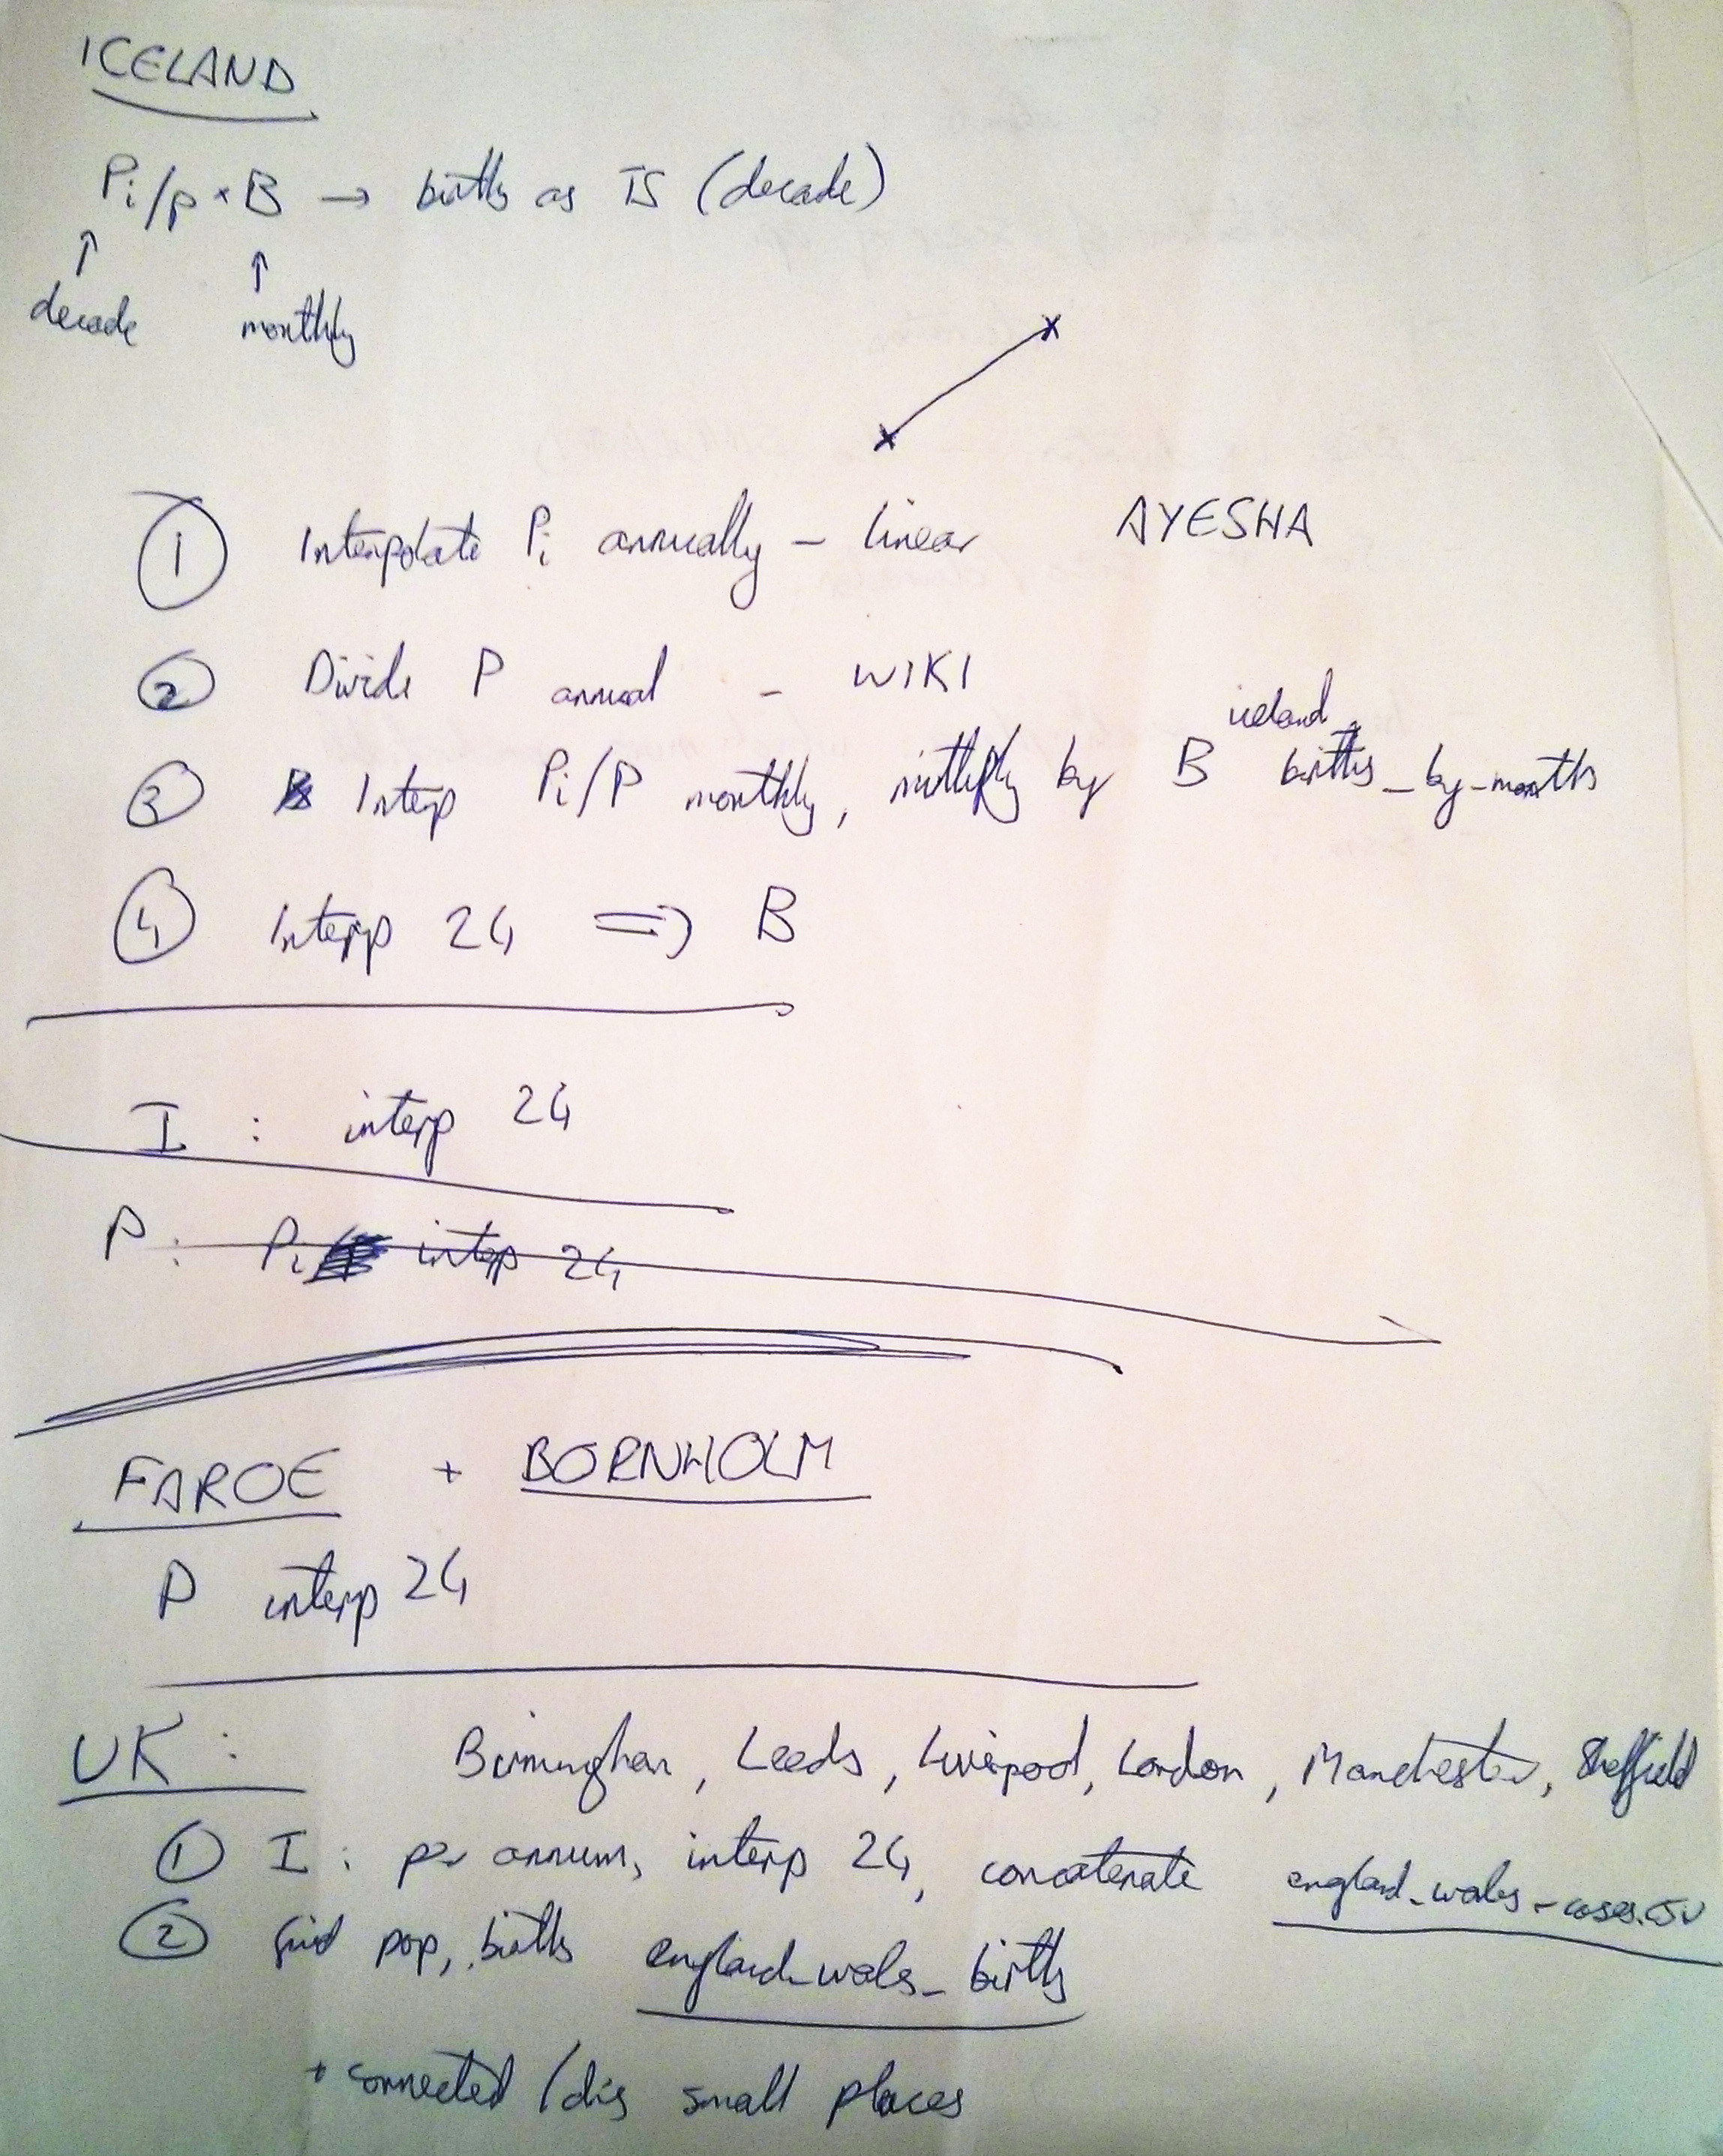 ICELAND
Pi/p * B → births as TS (decade)
↑ ↑
decade monthly
① Interpolate Pi annually - linear AYESHA
② Divide P annual - WIKI
iceland
③ Interp Pi/P monthly, multiply by B births_by_months
④ Interp 24 ⇒ B
I : interp 24
P : Pi interp 24
FAROE + BORNHOLM
P interp 24
UK : Birmingham, Leeds, Liverpool, London, Manchester, Sheffield
① I : per annum, interp 24, concatenate england_wales_cases.csv
② find pop, births england_wales_births
+ connected / dis small places